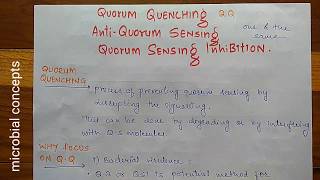 QUORUM QUENCHING Q.Q
ANTI-QUORUM SENSING one & the same
QUORUM SENSING INHIBITION.
QUORUM QUENCHING → process of preventing quorum sensing by
disrupting the signalling.
This can be done by degrading or by interfering
with Q.S molecules.
WHY FOCUS ON Q.Q → 1) Bacterial virulence :
Q.Q or QSI is potential method for
microbial concepts